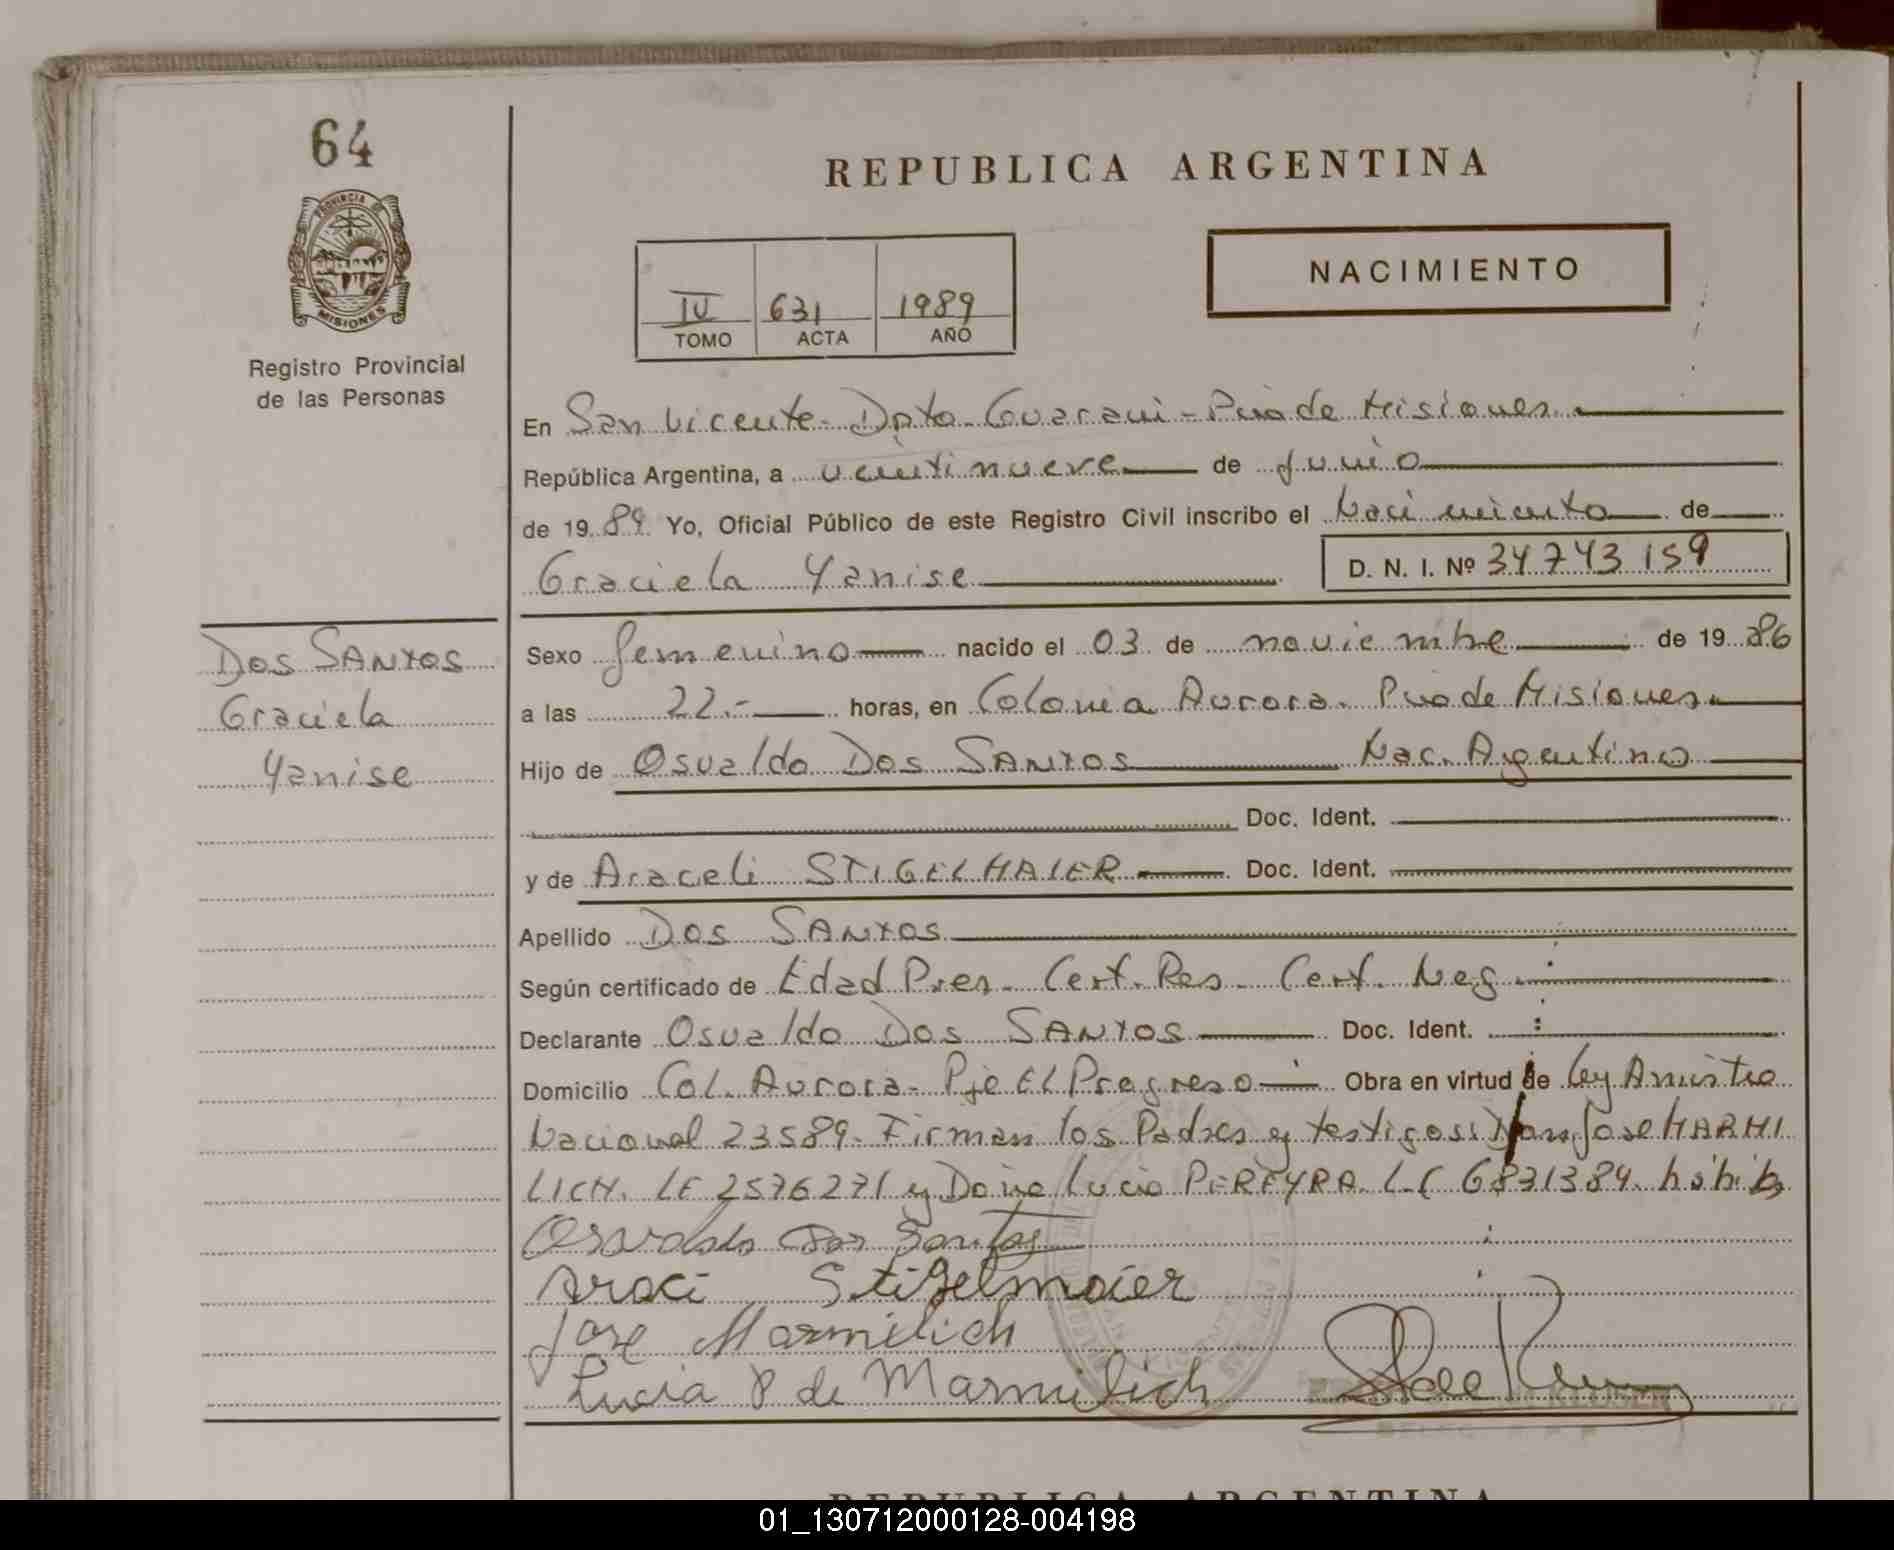 64
PROVINCIA DE
MISIONES
Registro Provincial
de las Personas
REPUBLICA ARGENTINA
NACIMIENTO
IV 631 1989
TOMO ACTA AÑO
En San Vicente - Dpto Guarani - Pcia de Misiones
República Argentina, a veintinueve de Junio
de 1989 Yo, Oficial Público de este Registro Civil inscribo el Nacimiento de
Graciela Yanise D. N. I. Nº 34743159
DOS SANTOS
Graciela
Yanise
Sexo femenino nacido el 03 de noviembre de 1986
a las 22.- horas, en Colonia Aurora. Pcia de Misiones
Hijo de Osvaldo Dos SANTOS Nac. Argentino
Doc. Ident.
y de Araceli STIGELMAIER Doc. Ident.
Apellido DOS SANTOS
Según certificado de Edad Pres. Cert. Res. Cert. Neg.
Declarante Osvaldo Dos SANTOS Doc. Ident.
Domicilio Col. Aurora - Pje El Progreso Obra en virtud de Ley Amistia
Nacional 23589. Firman los Padres y testigos: Don Jose MARMI
LICH. LE 2576271 y Doña Lucia PEREYRA. L.C 6831384. hábib
Osvaldo Dos Santos
Araci Stigelmaier
Jose Marmilich
Lucia P de Marmilich
REPUBLICA ARGENTINA
01_130712000128-004198